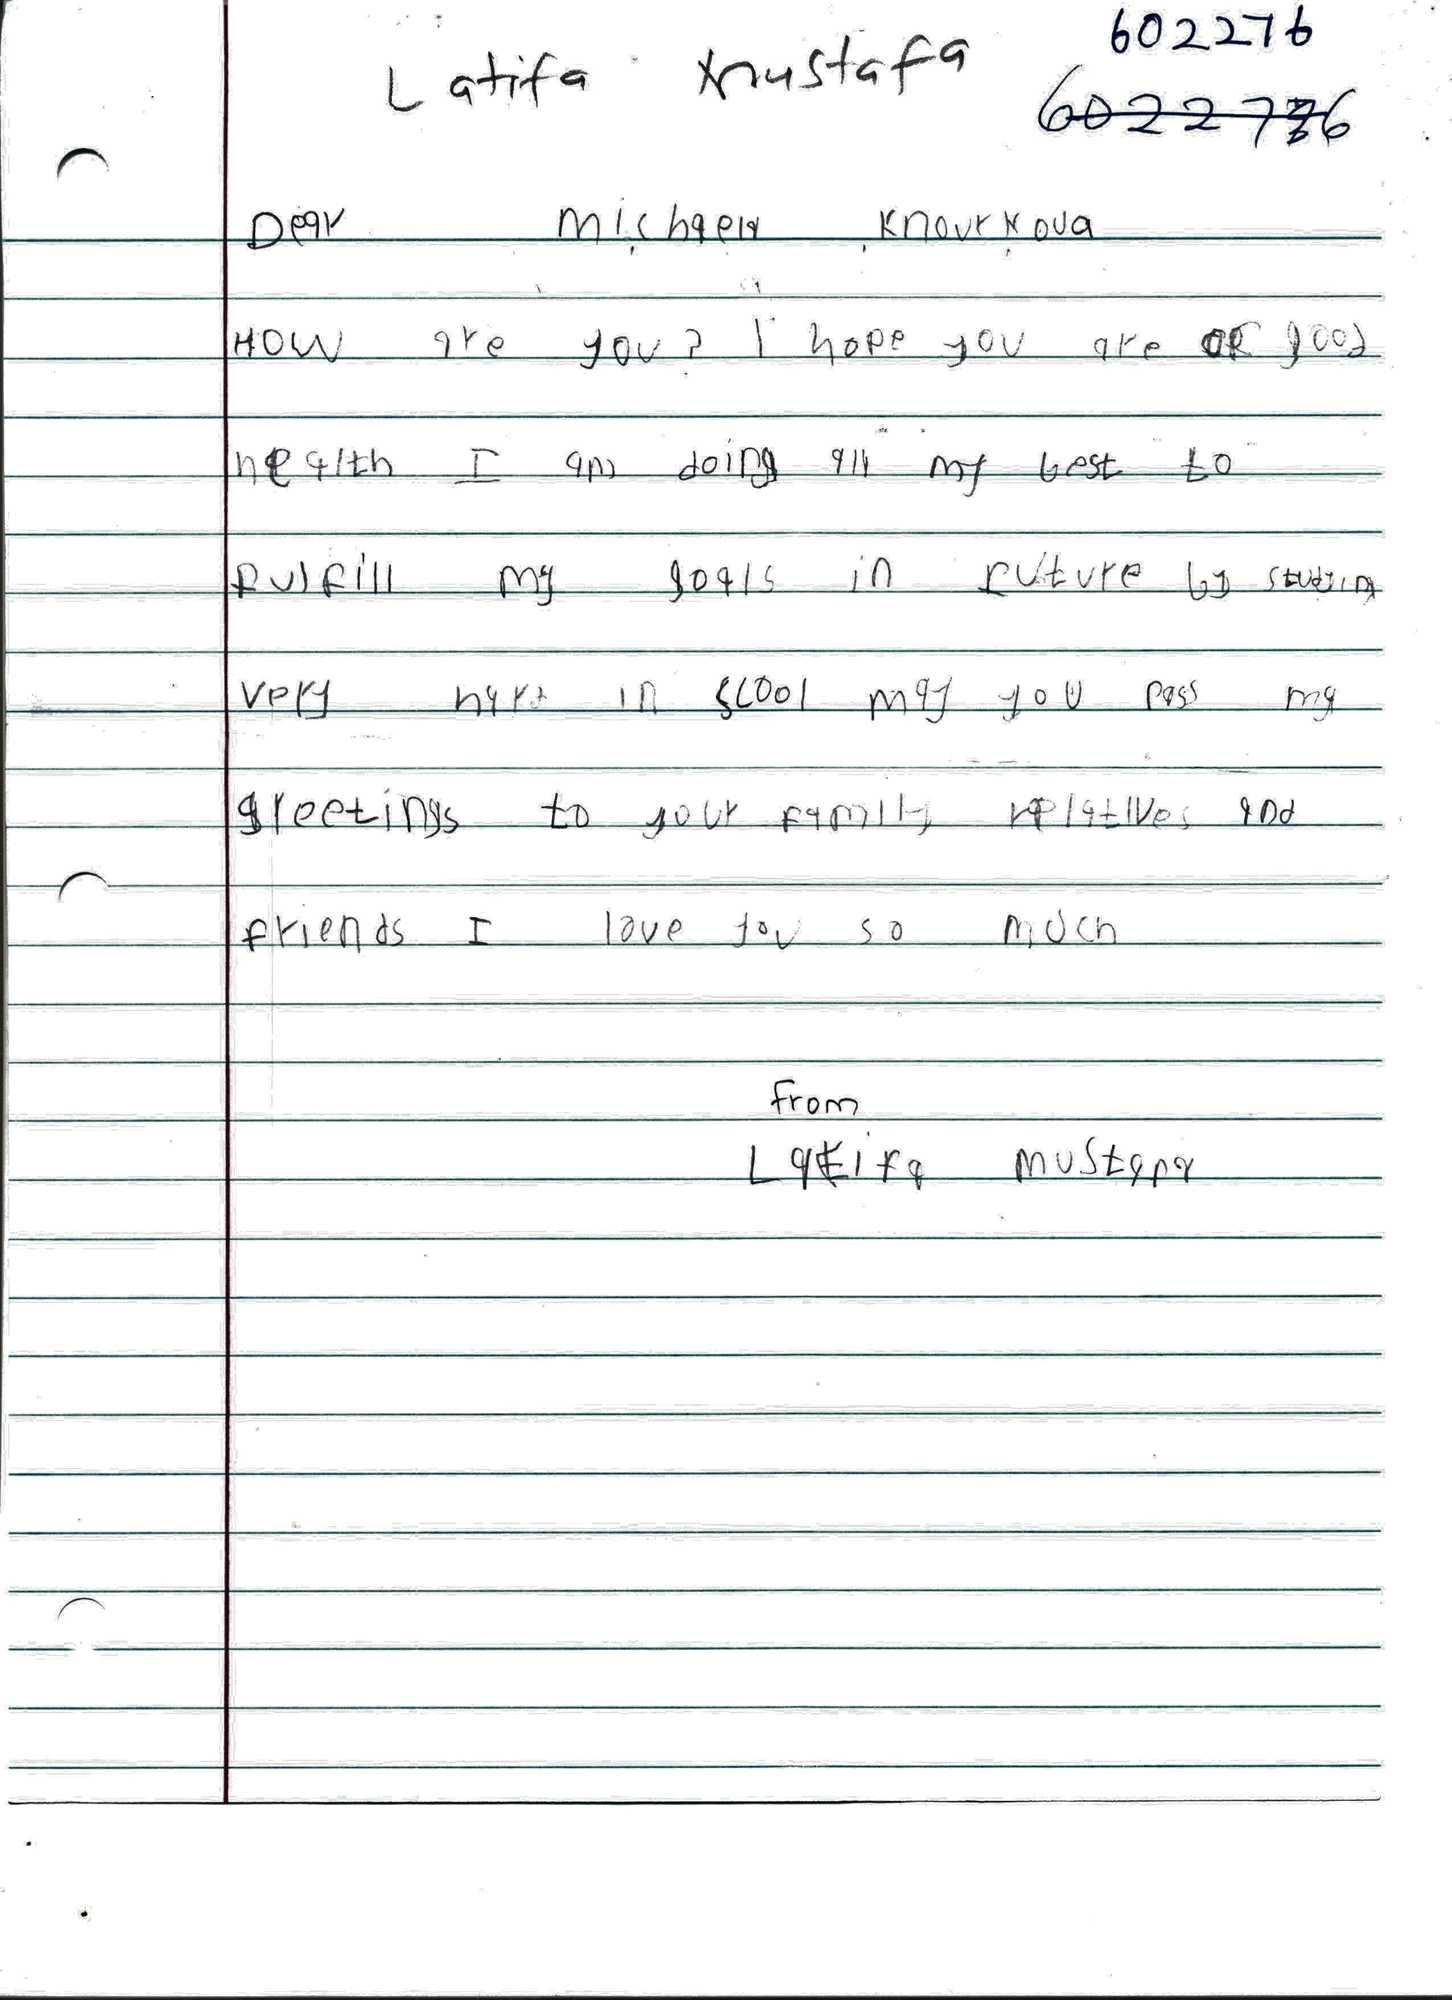 Latifa Mustafa 602276
6022776
Dear Michaela Knourkova
How are you? I hope you are of good
health I am doing all my best to
fulfill my goals in future by studing
very hard in scool may you pass my
greetings to your family relatives and
friends I love you so much
From
Latifa Mustafa